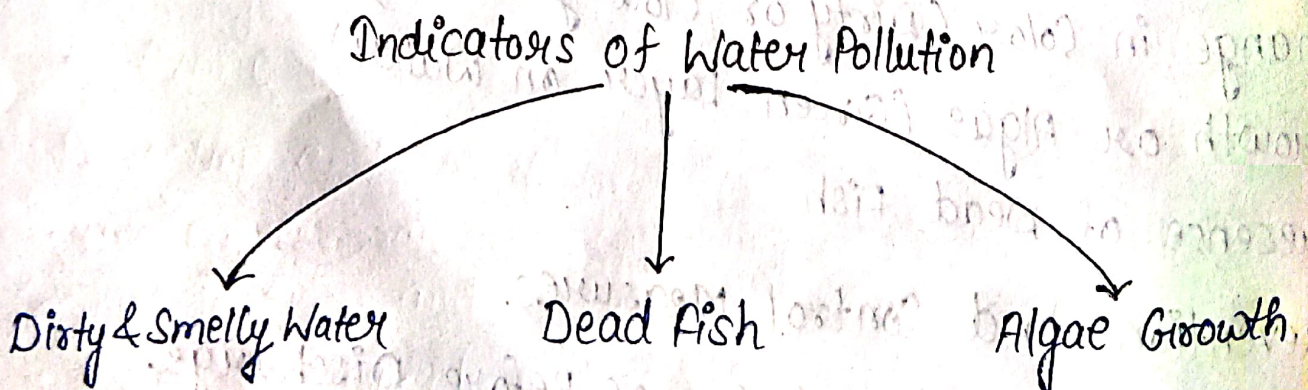 Indicators of Water Pollution
Dirty & Smelly Water
Dead Fish
Algae Growth.